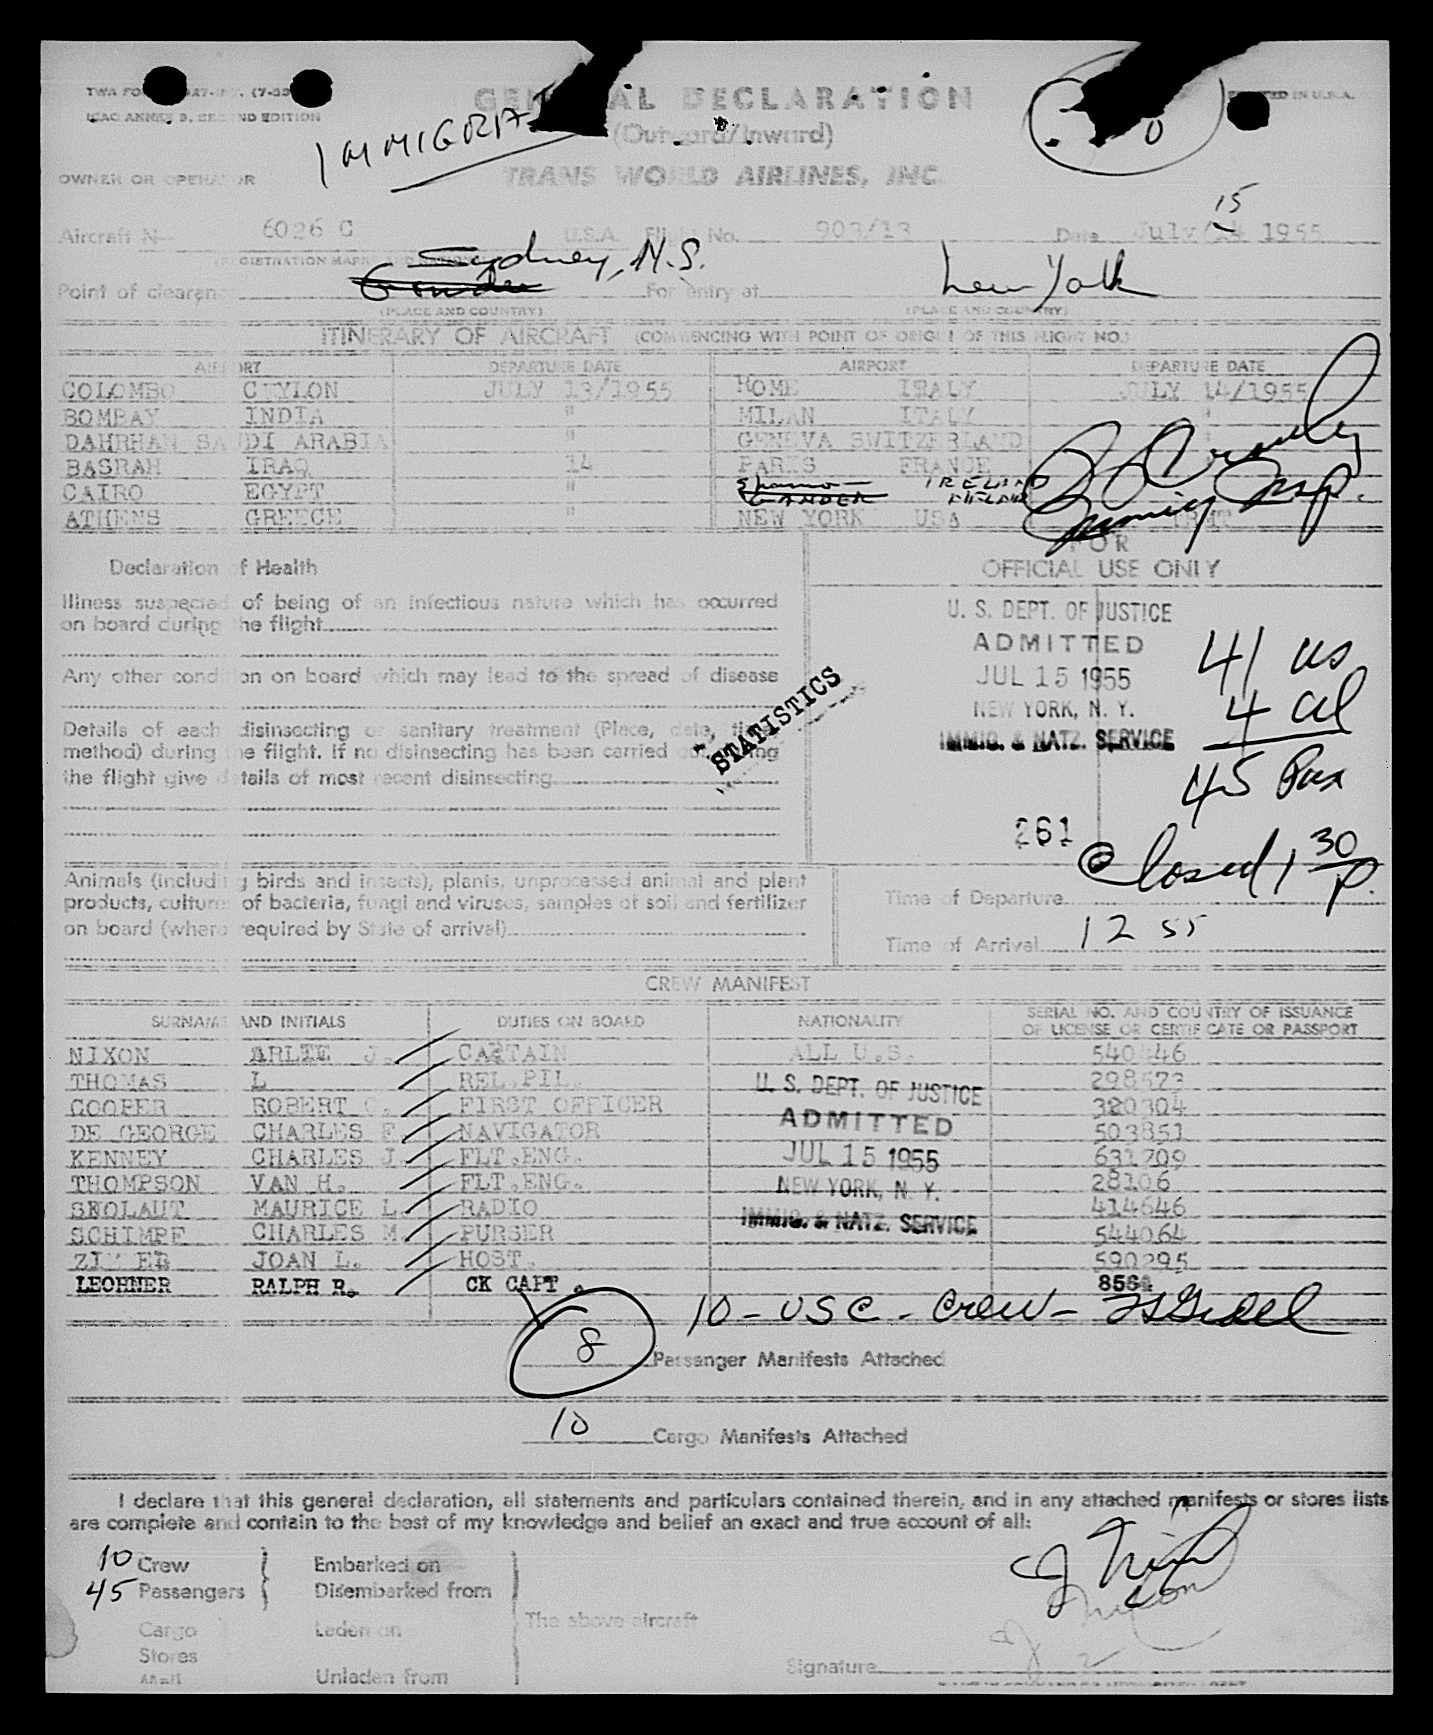 TWA FO (7-55
ICAO ANNEX 9, SECOND EDITION
GENERAL DECLARATION
(Outward/Inward)
IMMIGRA
0
PRINTED IN U.S.A.
OWNER OR OPERATOR
TRANS WORLD AIRLINES, INC.
15
Aircraft N— 6026 C U.S.A. Flight No. 903/13 Date July/14 1955
(REGISTRATION MARKS AND NATIONALITY)
Sydney, N.S.
Point of clearance Gander For entry at New York
(PLACE AND COUNTRY) (PLACE AND COUNTRY)
ITINERARY OF AIRCRAFT (COMMENCING WITH POINT OF ORIGIN OF THIS FLIGHT NO.)
AIRPORT DEPARTURE DATE AIRPORT DEPARTURE DATE
COLOMBO CEYLON JULY 13/1955 ROME ITALY JULY 14/1955
BOMBAY INDIA " MILAN ITALY "
DAHRHAN SAUDI ARABIA " GENEVA SWITZERLAND "
BASRAH IRAQ 14 PARIS FRANCE
CAIRO EGYPT " Shannon IRELAND
GANDER NFLAND
ATHENS GREECE " NEW YORK USA TRMT
Crowley
Immig Insp.
Declaration of Health
FOR
OFFICIAL USE ONLY
Illness suspected of being of an infectious nature which has occurred
on board during the flight
Any other condition on board which may lead to the spread of disease
Details of each disinsecting or sanitary treatment (Place, date, time,
method) during the flight. If no disinsecting has been carried out during
the flight give details of most recent disinsecting
STATISTICS
U. S. DEPT. OF JUSTICE
ADMITTED
JUL 15 1955
NEW YORK, N. Y.
IMMIG. & NATZ. SERVICE
41 us
4 al
45 Pax
261
Closed 1 30 p.
Animals (including birds and insects), plants, unprocessed animal and plant
products, cultures of bacteria, fungi and viruses, samples of soil and fertilizer
on board (where required by State of arrival)
Time of Departure
Time of Arrival 12 55
CREW MANIFEST
SURNAME AND INITIALS DUTIES ON BOARD NATIONALITY SERIAL NO. AND COUNTRY OF ISSUANCE
OF LICENSE OR CERTIFICATE OR PASSPORT
NIXON ARLIE J. CAPTAIN ALL U.S. 540446
THOMAS L REL.PIL. 298573
COOPER ROBERT C. FIRST OFFICER 320304
DE GEORGE CHARLES F. NAVIGATOR 503851
KENNEY CHARLES J. FLT.ENG. 631209
THOMPSON VAN H. FLT.ENG. 28106
SKOLAUT MAURICE L. RADIO 414646
SCHIMPF CHARLES M. PURSER 544064
JOAN L. HOST. 590295
LEOHNER RALPH R. CK CAPT. 8564
U. S. DEPT. OF JUSTICE
ADMITTED
JUL 15 1955
NEW YORK, N. Y.
IMMIG. & NATZ. SERVICE
10 - USC - Crew -
8 Passenger Manifests Attached
10 Cargo Manifests Attached
I declare that this general declaration, all statements and particulars contained therein, and in any attached manifests or stores lists
are complete and contain to the best of my knowledge and belief an exact and true account of all:
10 Crew Embarked on
45 Passengers Disembarked from
Cargo Laden on The above aircraft
Stores
Mail Unladen from
A J Nixon
Signature